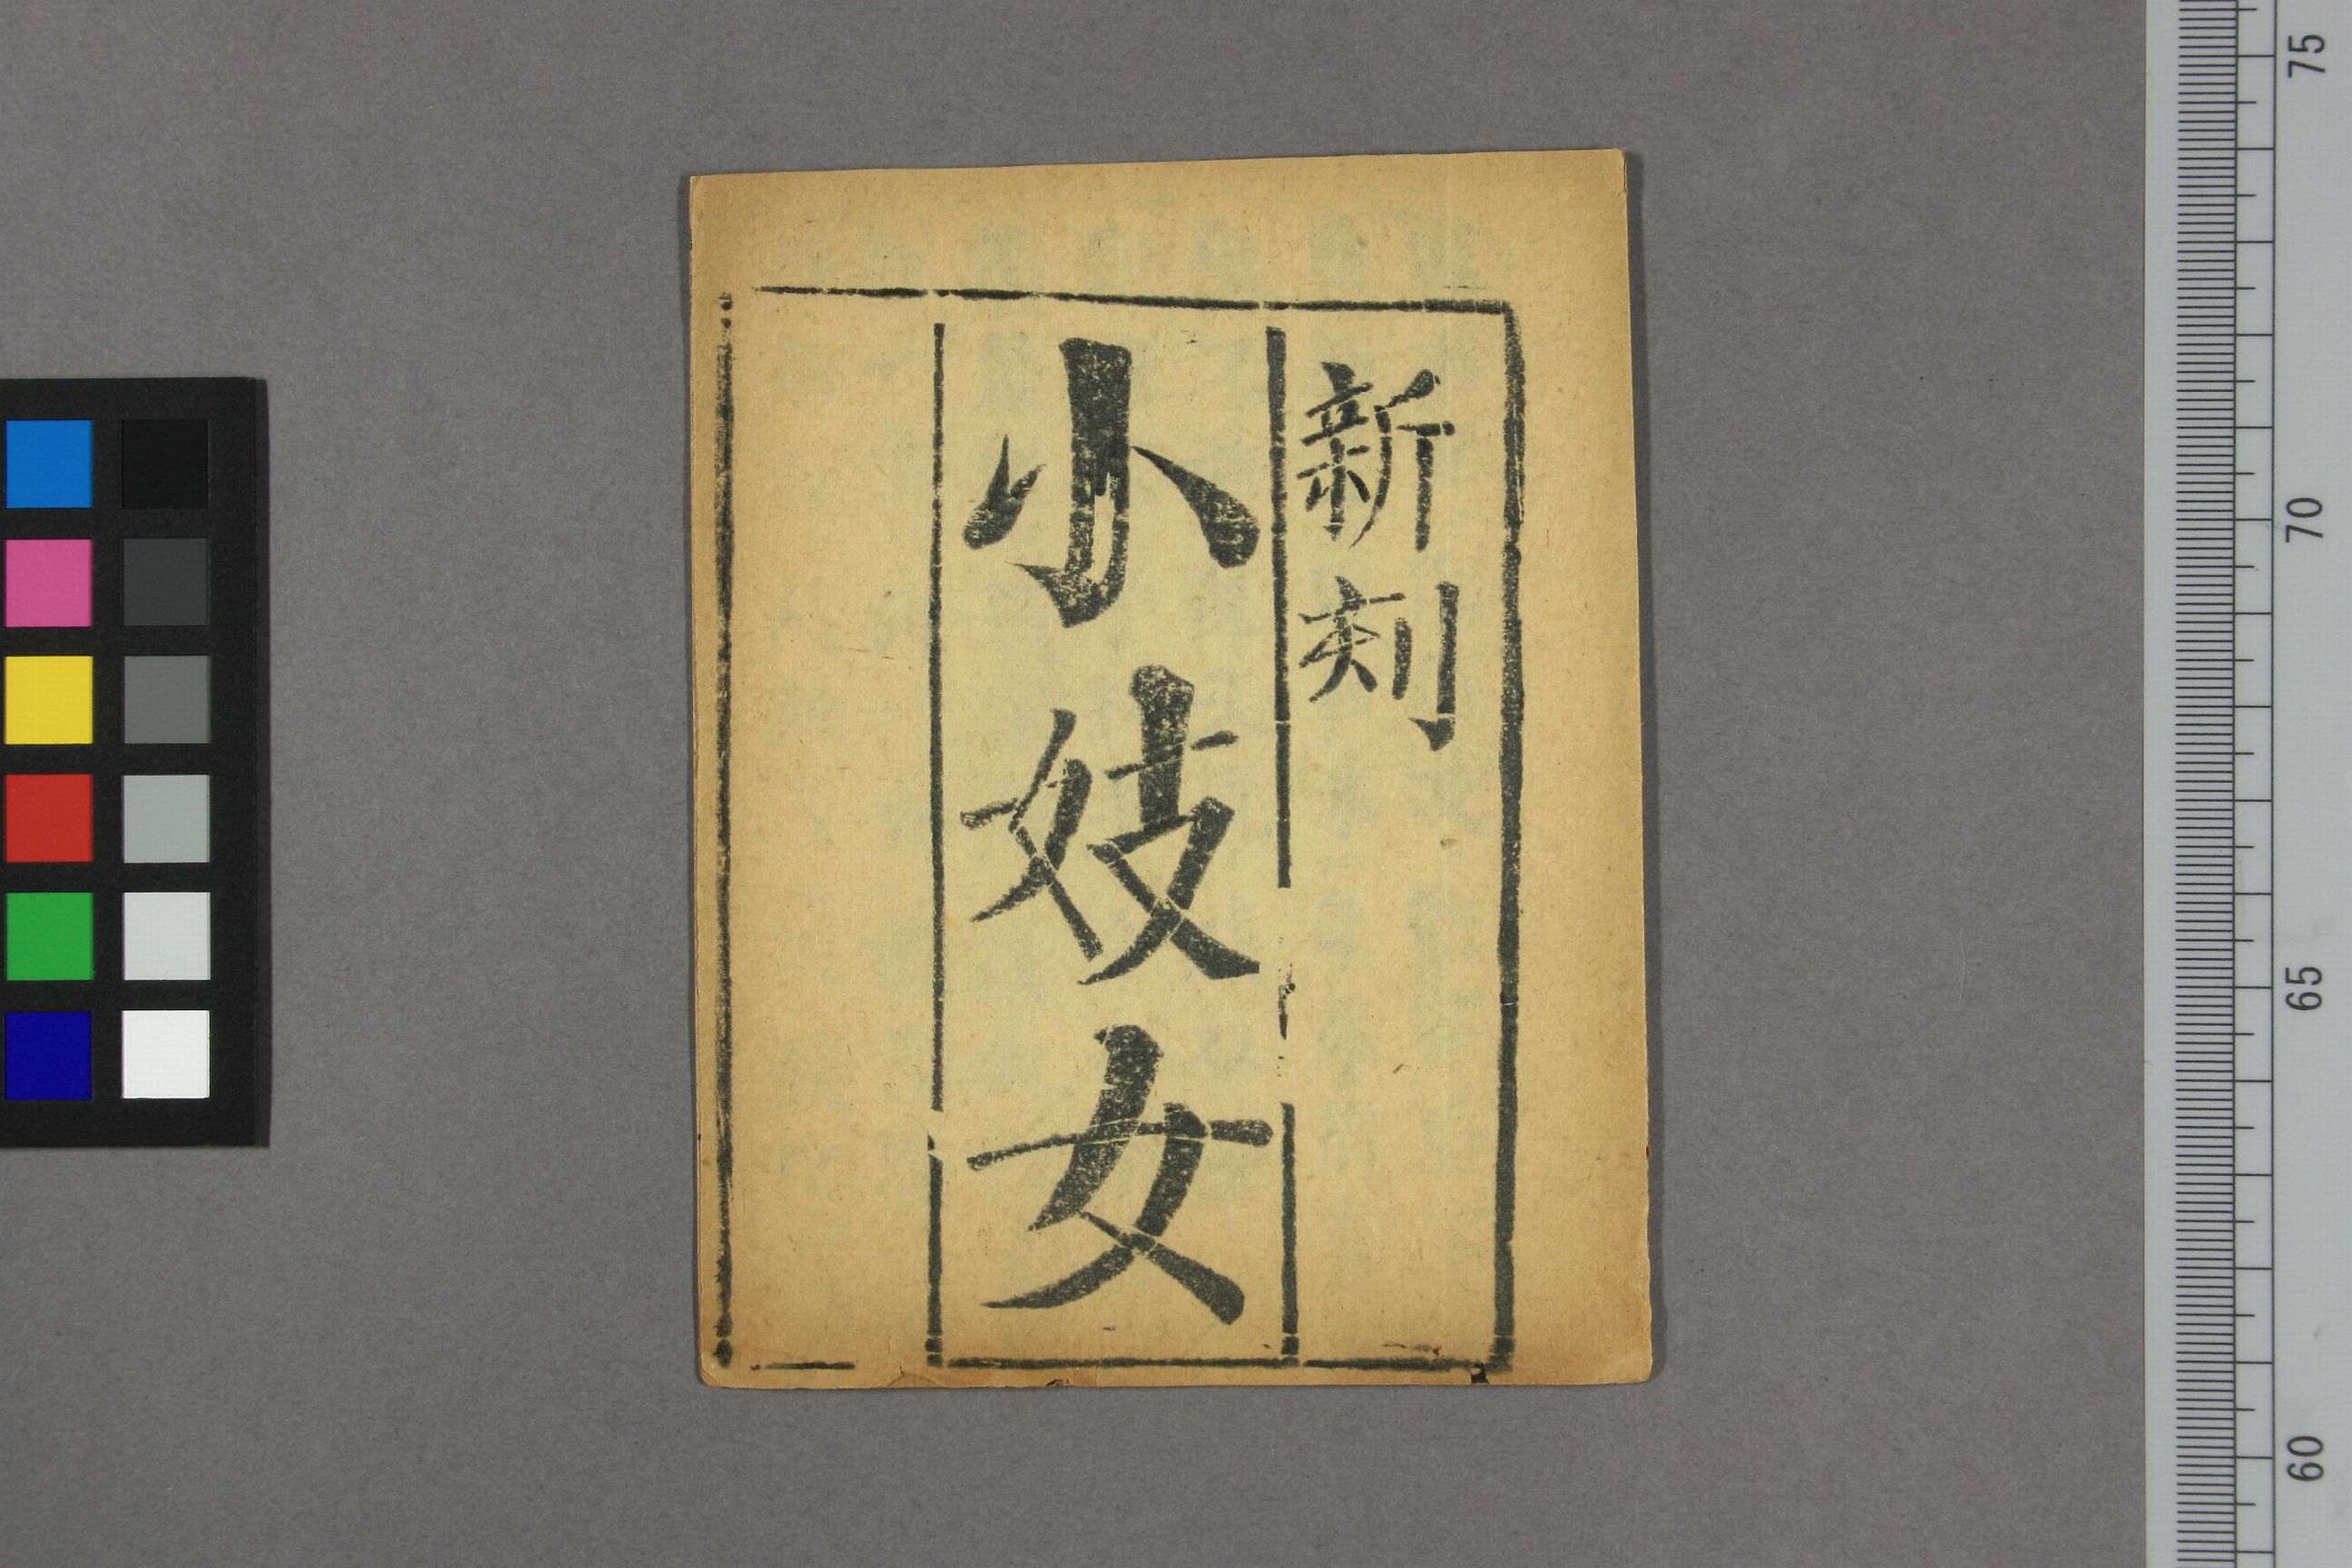 新刻
小妓女
75
70
65
60